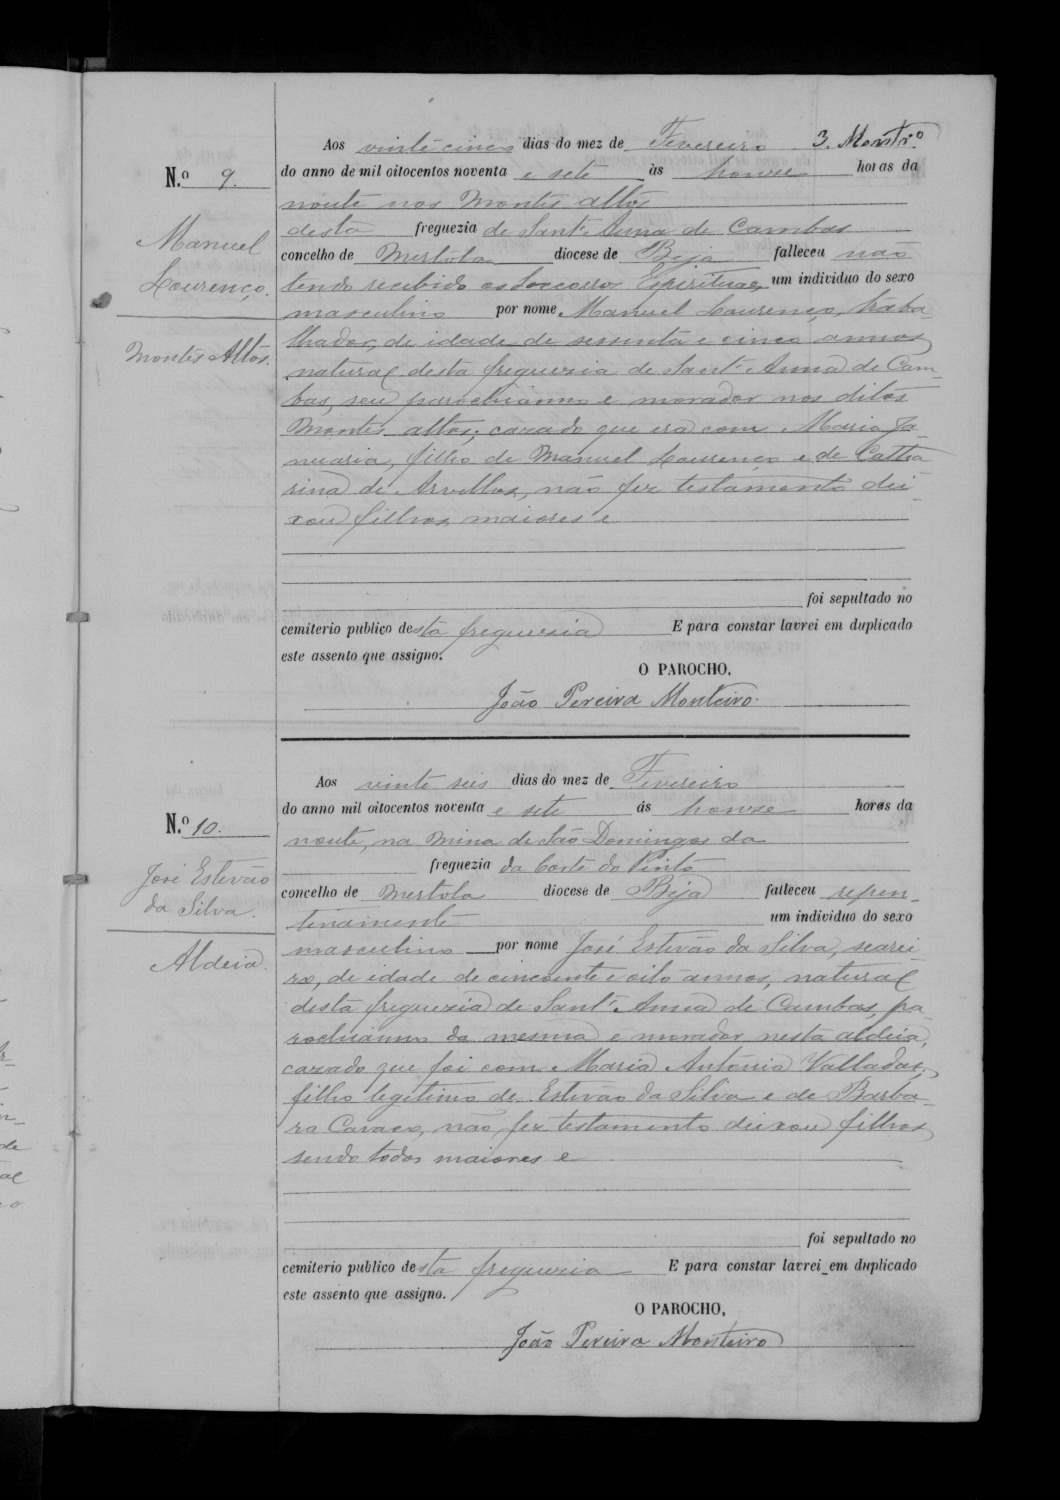 Aos vinte cinco dias do mez de Fevereiro 3. Montr.º
N.º 9.
do anno de mil oitocentos noventa e sete ás honze horas da
noute nos Montes altos
desta freguezia de Sant'Anna de Cambas
Manuel
Lourenço.
concelho de Mertola diocese de Beja falleceu não
tendo recebido os Soccorros Espirituaes um individuo do sexo
masculino por nome Manuel Lourenço, traba-
Montes Altos.
lhador, de idade de sessenta e cinco annos,
natural desta freguezia de Sant'Anna de Cam-
bas, seu parochianno e morador nos ditos
Montes altos, cazado que era com Maria Ja-
nuaria, filho de Manuel Lourenço e de Catha
rina de Arvellos, não fez testamento dei-
xou filhos maiores e
foi sepultado no
cemiterio publico desta freguezia E para constar lavrei em duplicado
este assento que assigno.
O PAROCHO,
João Pereira Monteiro.
Aos vinte seis dias do mez de Fevereiro
do anno mil oitocentos noventa e sete ás honze horas da
N.º 10.
noute, na mina de São Domingos da
freguezia da Corte do Pinto
José Estevão
da Silva.
concelho de Mertola diocese de Beja falleceu repen-
tinamente um individuo do sexo
masculino por nome José Estevão da Silva, searei-
Aldeia.
ro, de idade de cincoente e oito annos, natural
desta freguezia de Sant'Anna de Cambas, pa-
rochianno da mesma e morador nesta aldeia,
cazado que foi com Maria Antonia Valladas,
filho legitimo de Estevão da Silva e de Barba-
ra Cavaco, não fez testamento deixou filhos
sendo todos maiores e
foi sepultado no
cemiterio publico desta freguezia E para constar lavrei em duplicado
este assento que assigno.
O PAROCHO,
João Pereira Monteiro